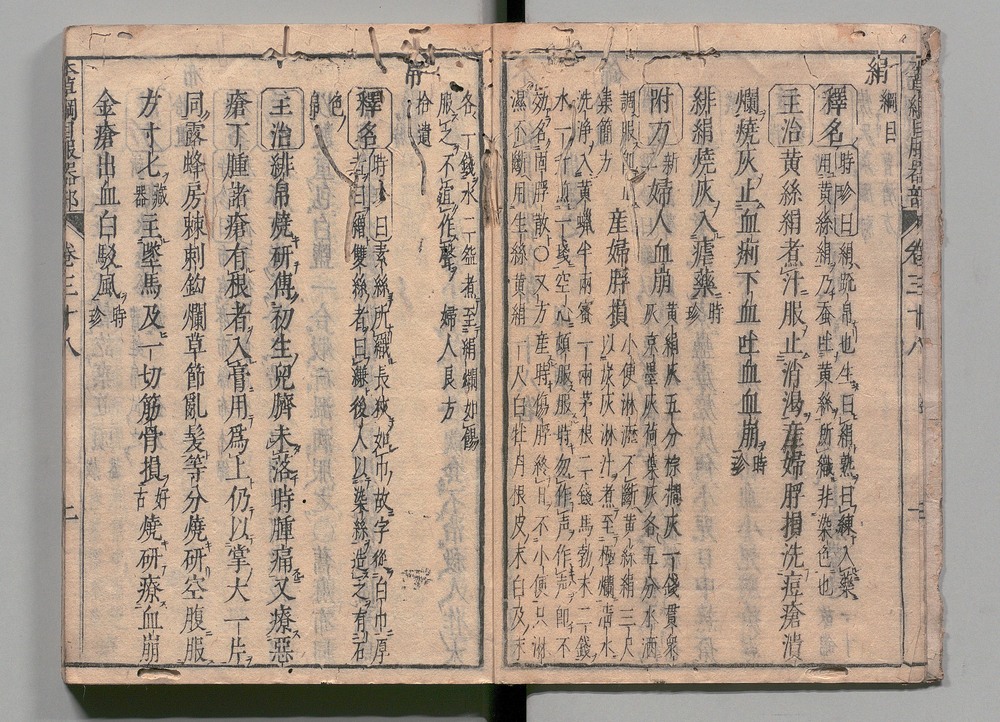 絹 綱目
釋名 時珍曰絹疏帛也生曰絹熟曰練入藥
用黃絲絹乃蚕吐黃絲所織非染色也
主治黃絲絹煮汁服止消渴產婦脬損洗痘瘡潰
爛燒灰止血痢下血吐血血崩 時珍
緋絹燒灰入瘧藥 時珍
附方 新二 婦人血崩 黃絹灰五分棕櫚灰一錢貫衆
灰京墨灰荷葉灰各五分水酒
調服
集簡方 產婦脬損 小便淋瀝不斷黃絲絹三尺
以炭灰淋汁煮至極爛清水
洗淨入黃蠟半兩蜜一兩茅根二錢馬勃末二錢
水一升煎一盞空心頓服服時勿作声作声即不
効名固脬散〇又方產時傷脬終日不小便只淋
濕不斷用生絲黃絹一尺白牡丹根皮末白及末
各一錢水二盌煮至絹爛如餳
服之不宜作聲 婦人良方
帛 拾遺
釋名 時珍曰素絲所織長狹如巾故字從白巾厚
者曰繒雙絲者曰縑後人以染絲造之有五
色帛
主治緋帛燒研傅初生兒臍未落時腫痛又療惡
瘡丁腫諸瘡有根者入膏用爲上仍以掌大一片
同露蜂房棘刺鉤爛草節亂髮等分燒研空腹服
方寸匕 藏器 主墜馬及一切筋骨損 好古 燒研療血崩
金瘡出血白駁風 時珍
本草綱目服器部 卷三十八 二